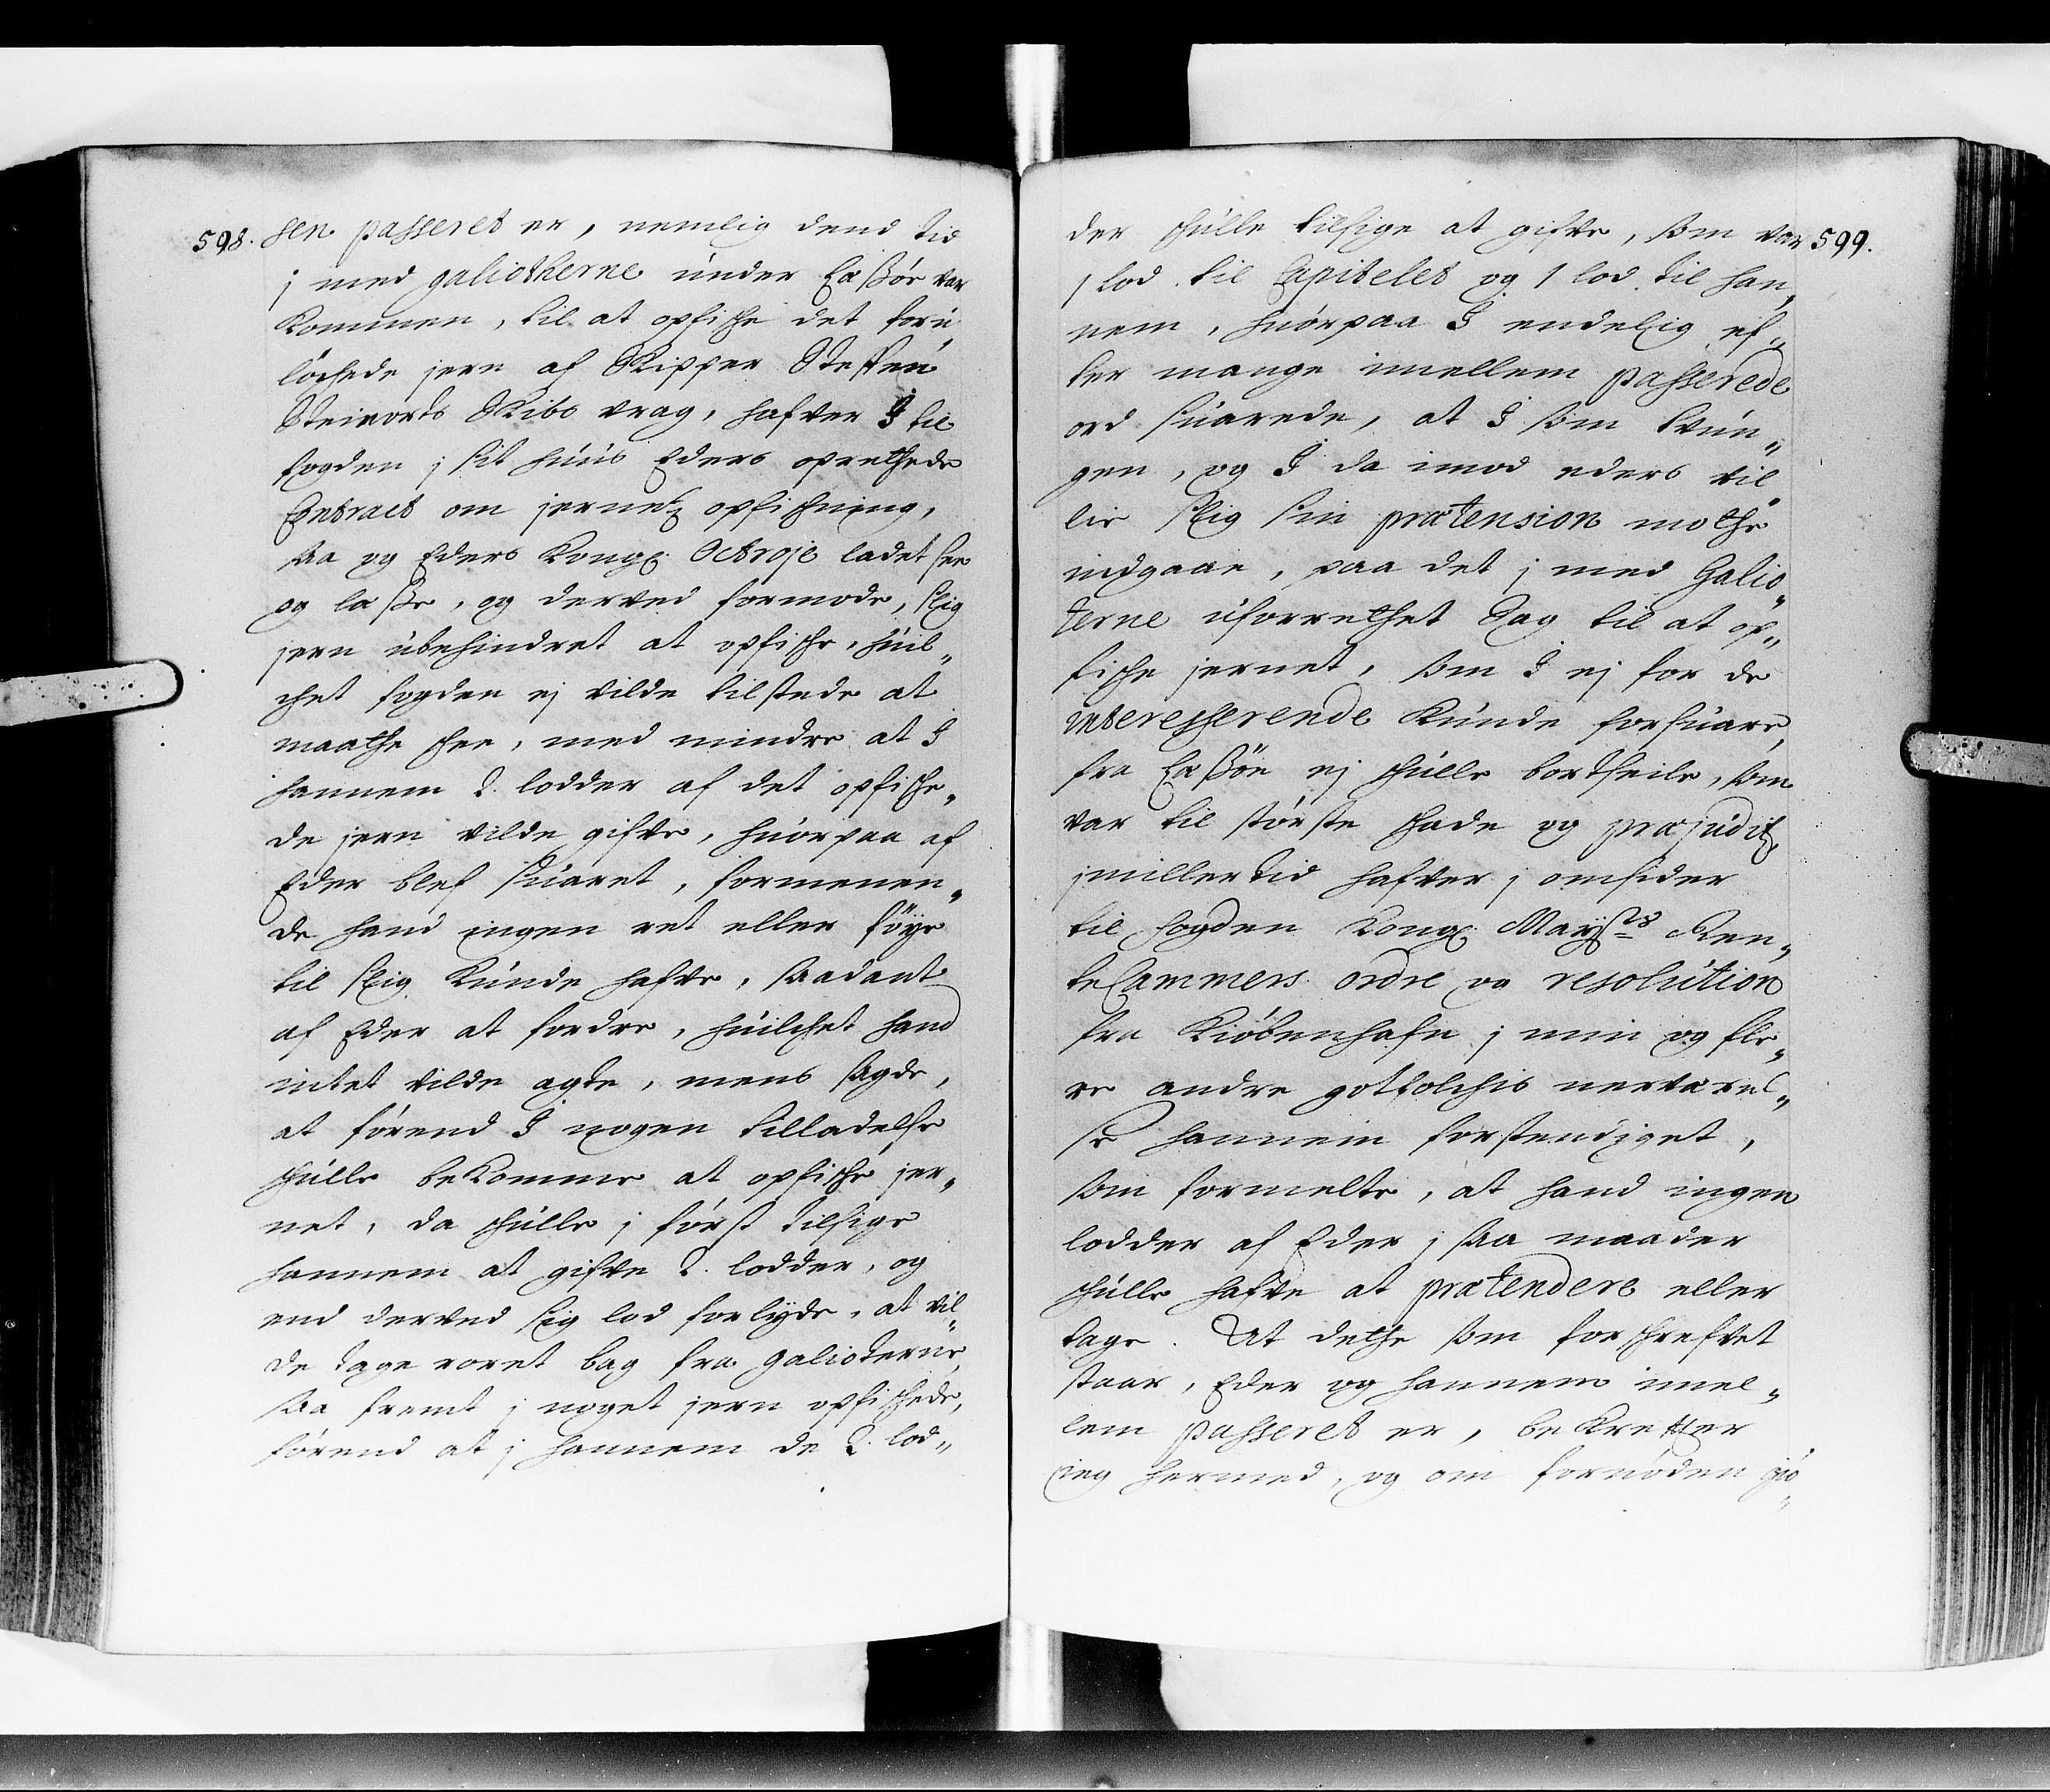 598.
sen passeret er, nemlig dend tid
j med galiotherne under Læssøe var
Kommen, til at opfiske det foru„
löchede jern af Skipper Steffen
Steivorts Skibs vrag, hafver I til
fogden j sit huus Eders oprethede
Contract om jernetz opfiskning,
saa og Eders Kongl. Octroje ladet see
og læsse, og derved formode, slig
jern ubehindret at opfiske, huil„
chet fogden ej vilde tilstede at
maatte skee, med mindre at I
hannem 2. lodder af det opfiske„
de jern vilde gifve, huorpaa af
Eder blef suaret, formenen„
de hand ingen ret eller föye
til slig Kunde hafve, saadant
af Eder at fordre, huilchet hand
intet vilde agte, mens sagde,
at förend I nogen tilladelse
skulle beKomme at opfiske jer„
net, da skulle j först tilsige
hannem at gifve 2. lodder, og
end derved sig lod forlyde, at vil„
de tage roret bag fra galioterne,
saa fremt j noget jern opfiskede,
förend at j hannem de 2. lod„
599.
der skulle tilsige at gifve, som var
1 lod til Capitelet og 1 lod til han„
nem, huorpaa I endelig ef„
ter mange imellem passerede
ord suarede, at I som tvun„
gen, og I da imod eders vil„
lie slig sin prætension mothe
indgaae, paa det j med Galio„
terne uforrethet Sag til at op„
fiske jernet, som I ej for de
interesserende Kunde forsuare,
fra Læssöe ej skulle bortseile, som
var til störste skade og præjuditz,
jmillertid hafver j omsider
til fogden Kongl. Mayst:s Ren„
teCammers ordre og resolution
fra Kiöbenhafn j min og fle„
re andre gotfolchis nerværel„
se hannem forstendiget,
som formelte, at hand ingen
lodder af Eder j saa maader
skulle hafve at prætendere eller
tage. At dethe som forskrefvet
staar, Eder og hannem imel„
lem passeret er, beKreffter
ieg hermed, og om fornöden giö„